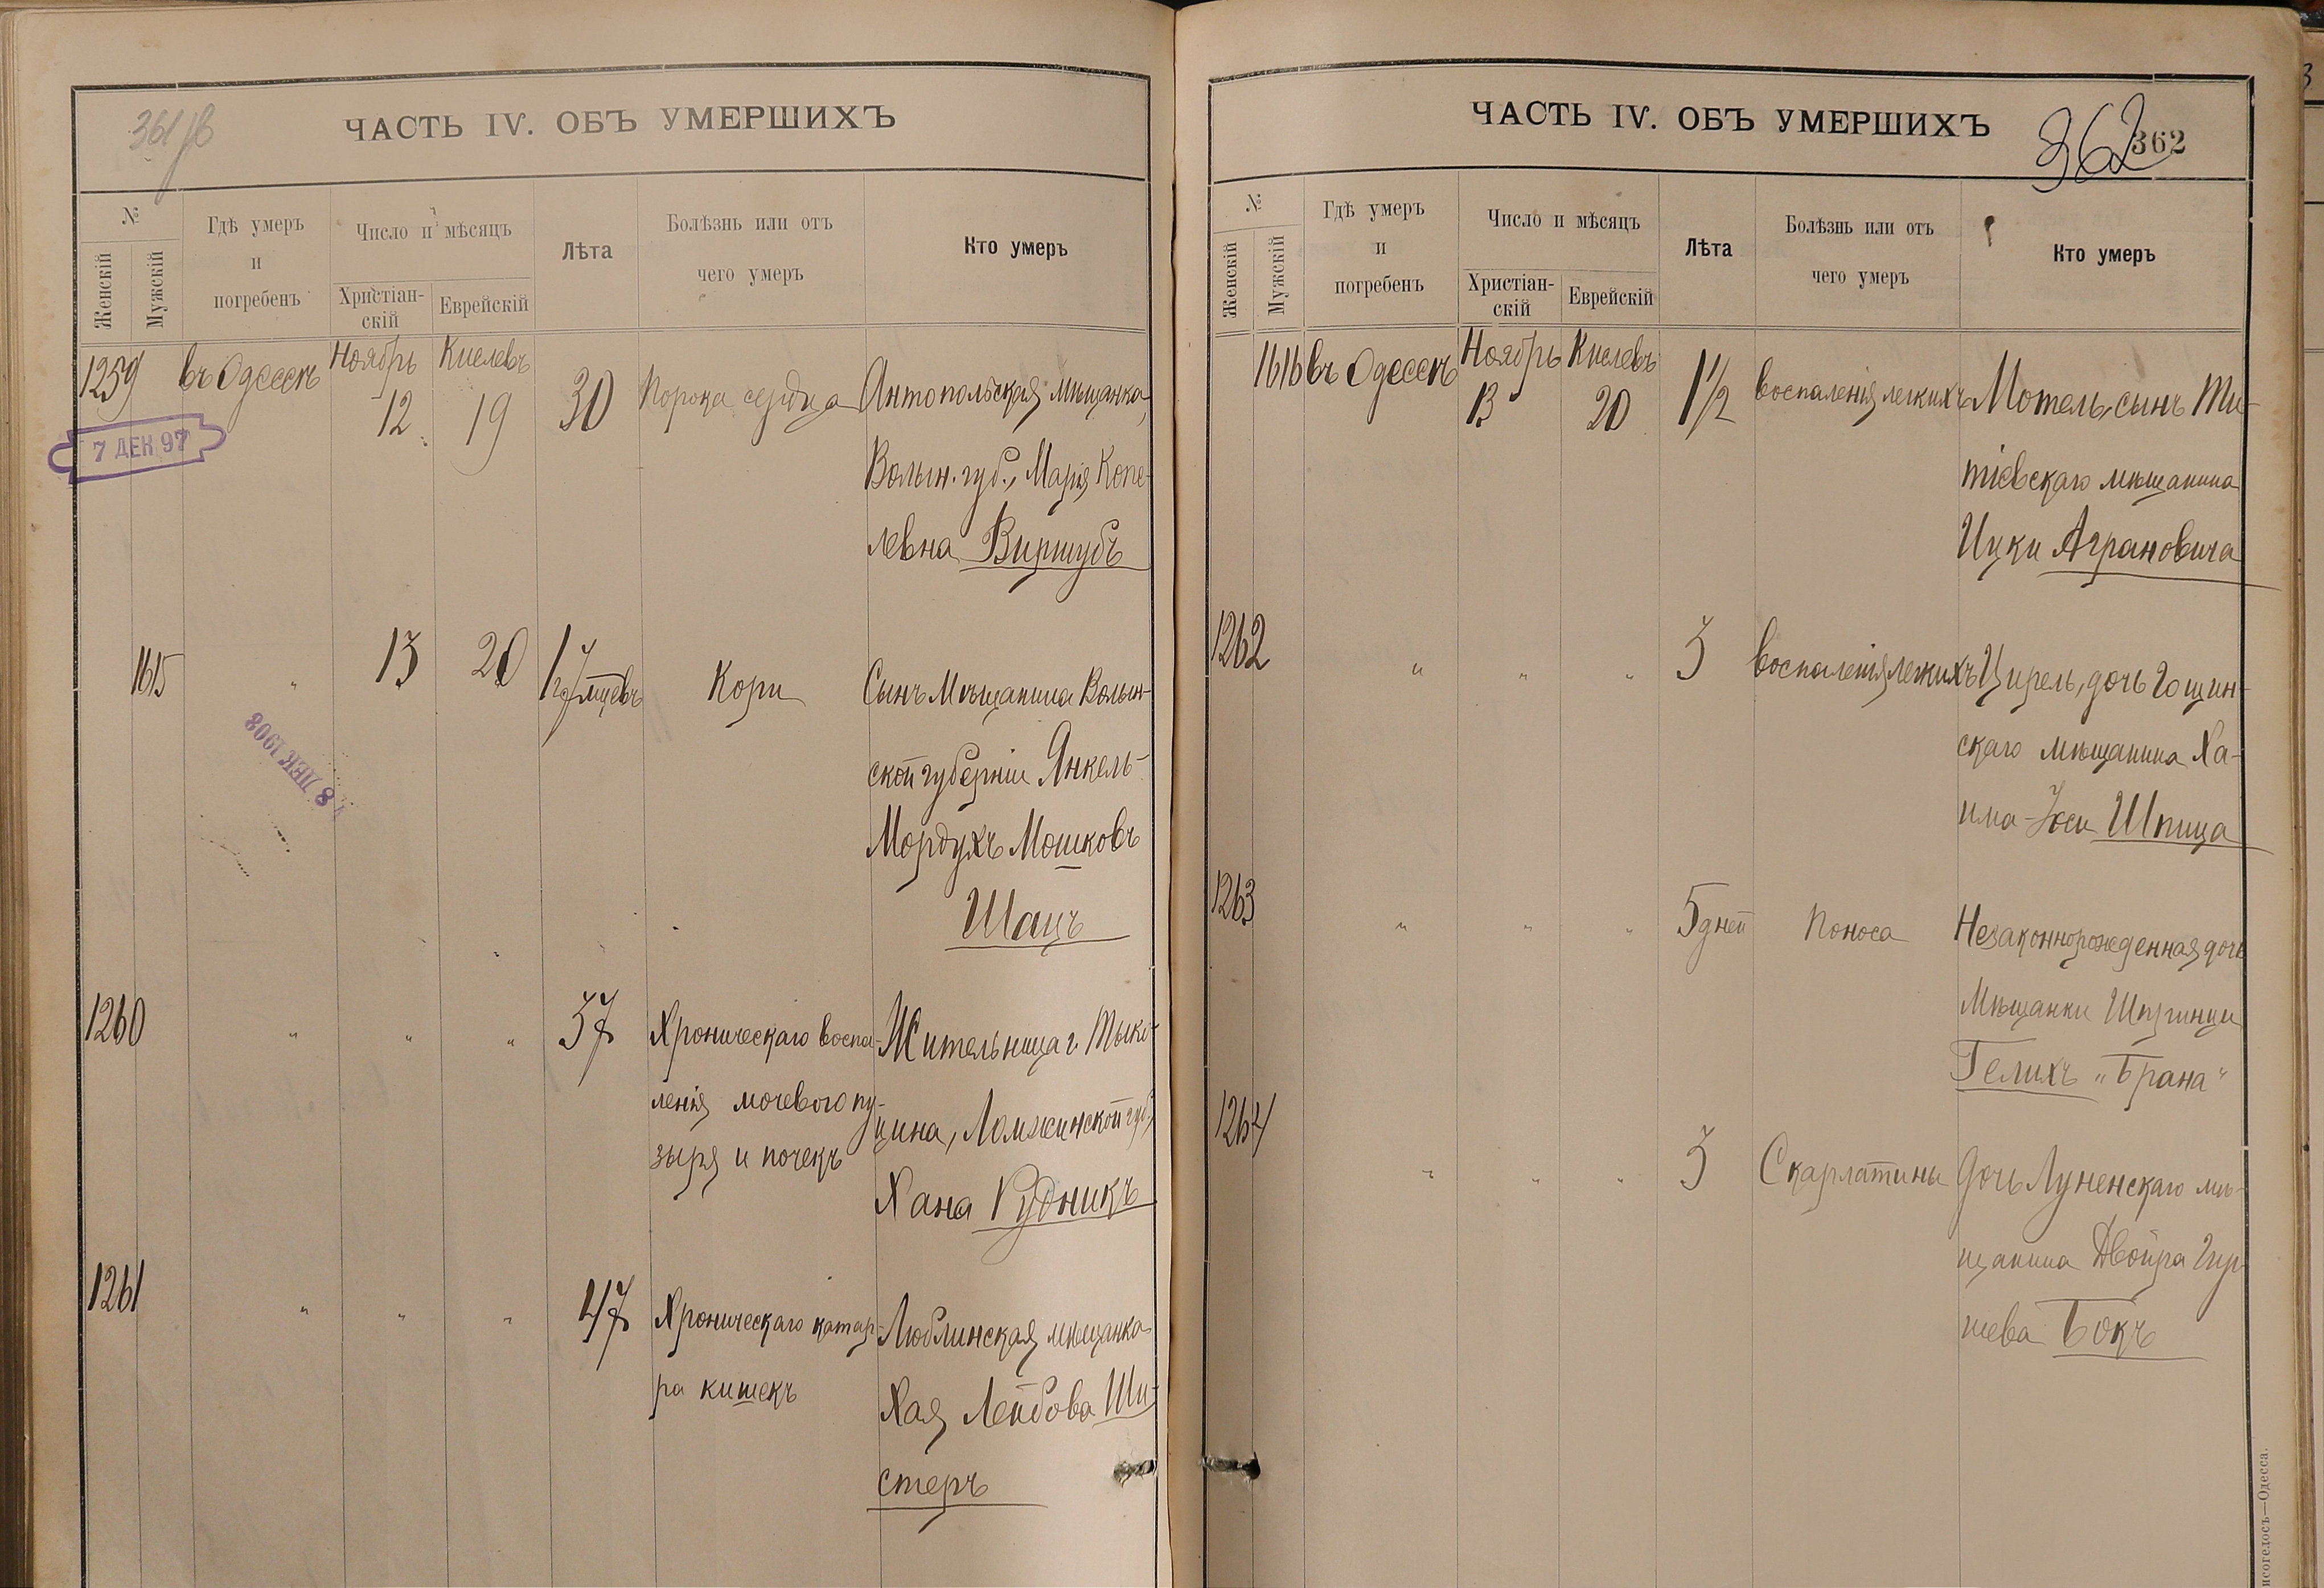 361/в
ЧАСТЬ IV. ОБЪ УМЕРШИХЪ
№
Женскій
Мужскій
Гдѣ умеръ
и
погребенъ
Число и мѣсяцъ
Христіан-
скій
Еврейскій
Лѣта
Болѣзнь или отъ
чего умеръ
Кто умеръ
1259 въ Одессѣ Ноябрь 12 Кислевъ 19 30 Порока сердца Антопольская мѣщанка,
Волын. губ., Марія Копе-
левна Виршубъ
7 ДЕК 97
1615 " 13 20 1 г. 7 мцевъ Кори Сынъ Мѣщанина Волын-
ской губерніи Янкель-
Мордухъ Мошковъ
Шацъ
8 ДЕК 1908
1260 " " " 37 Хроническаго воспа- Жительница г. Тыко-
ленія мочевого пу- цина, Ломжинской губ.,
зыря и почекъ Хана Рудникъ
1261 " " " 47 Хроническаго катар- Люблинская мѣщанка
ра кишекъ Хая Лейбова Ши-
стеръ
ЧАСТЬ IV. ОБЪ УМЕРШИХЪ
362 362
№
Женскій
Мужскій
Гдѣ умеръ
и
погребенъ
Число и мѣсяцъ
Христіан-
скій
Еврейскій
Лѣта
Болѣзнь или отъ
чего умеръ
Кто умеръ
1616 въ Одессѣ Ноябрь 13 Кислевъ 20 1 1/2 воспаленія легкихъ Мотель, сынъ Ти-
тіевскаго мѣщанина
Ицки Аграновича
1262 " " " 3 воспаленія легкихъ Цирель, дочь Гощин-
скаго мѣщанина Ха-
има- Шпица
1263 " " " 5 дней Поноса Незаконнорожденная дочь
Мѣщанки
Гелихъ „Брана"
1264 " " " 3 Скарлатины Дочь Луненскаго мѣ-
щанина Двойра Гер-
шева Бокъ
исогелосъ—Одесса.